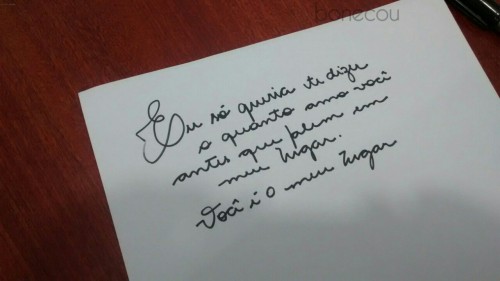 bonecou
Eu só queria te dizer
o quanto amo você
antes que falem em
meu lugar.
Você é o meu lugar